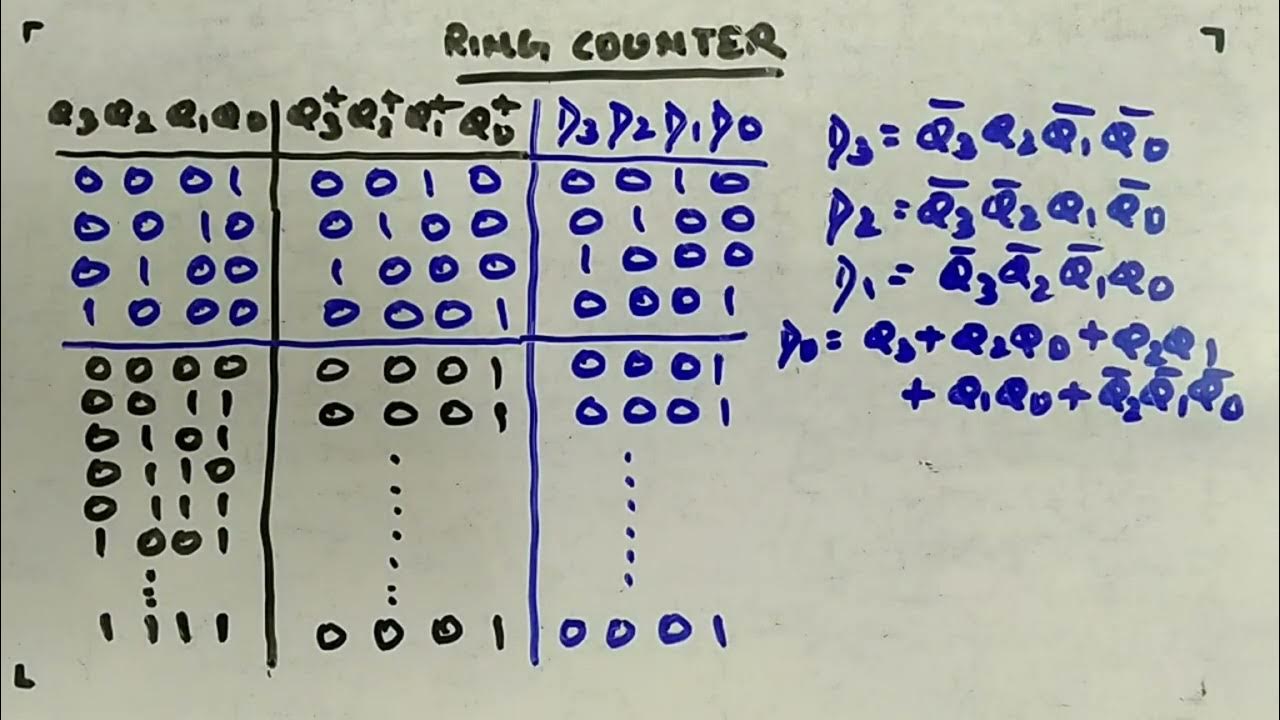 RING COUNTER
Q3 Q2 Q1 Q0 Q3⁺ Q2⁺ Q1⁺ Q0⁺ D3 D2 D1 D0
0 0 0 1 0 0 1 0 0 0 1 0
0 0 1 0 0 1 0 0 0 1 0 0
0 1 0 0 1 0 0 0 1 0 0 0
1 0 0 0 0 0 0 1 0 0 0 1
0 0 0 0 0 0 0 1 0 0 0 1
0 0 1 1 0 0 0 1 0 0 0 1
0 1 0 1
0 1 1 0
0 1 1 1
1 0 0 1
1 1 1 1 0 0 0 1 0 0 0 1
D3 = Q̅3 Q2 Q̅1 Q̅0
D2 = Q̅3 Q̅2 Q1 Q̅0
D1 = Q̅3 Q̅2 Q̅1 Q0
D0 = Q3 + Q2Q0 + Q2Q1
+ Q1Q0 + Q̅2 Q̅1 Q̅0